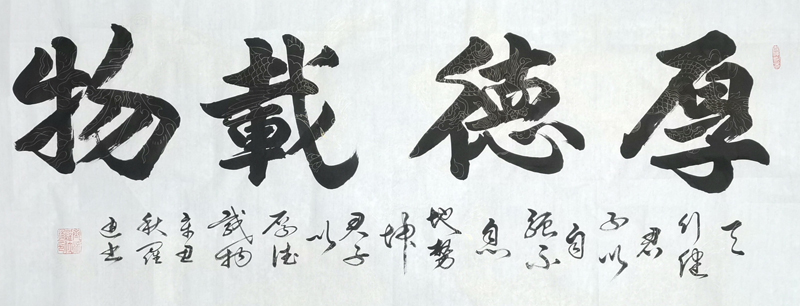 厚德載物
天
行健
君
子以
自
強不
息
地勢
坤
君子
以
厚德
載物
辛丑
秋羅
书